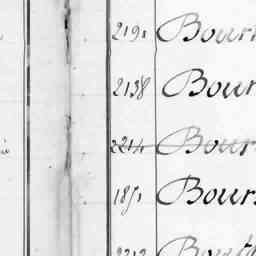 2191 Bour
2138 Bour
2214 Bour
1851 Bour
Bour